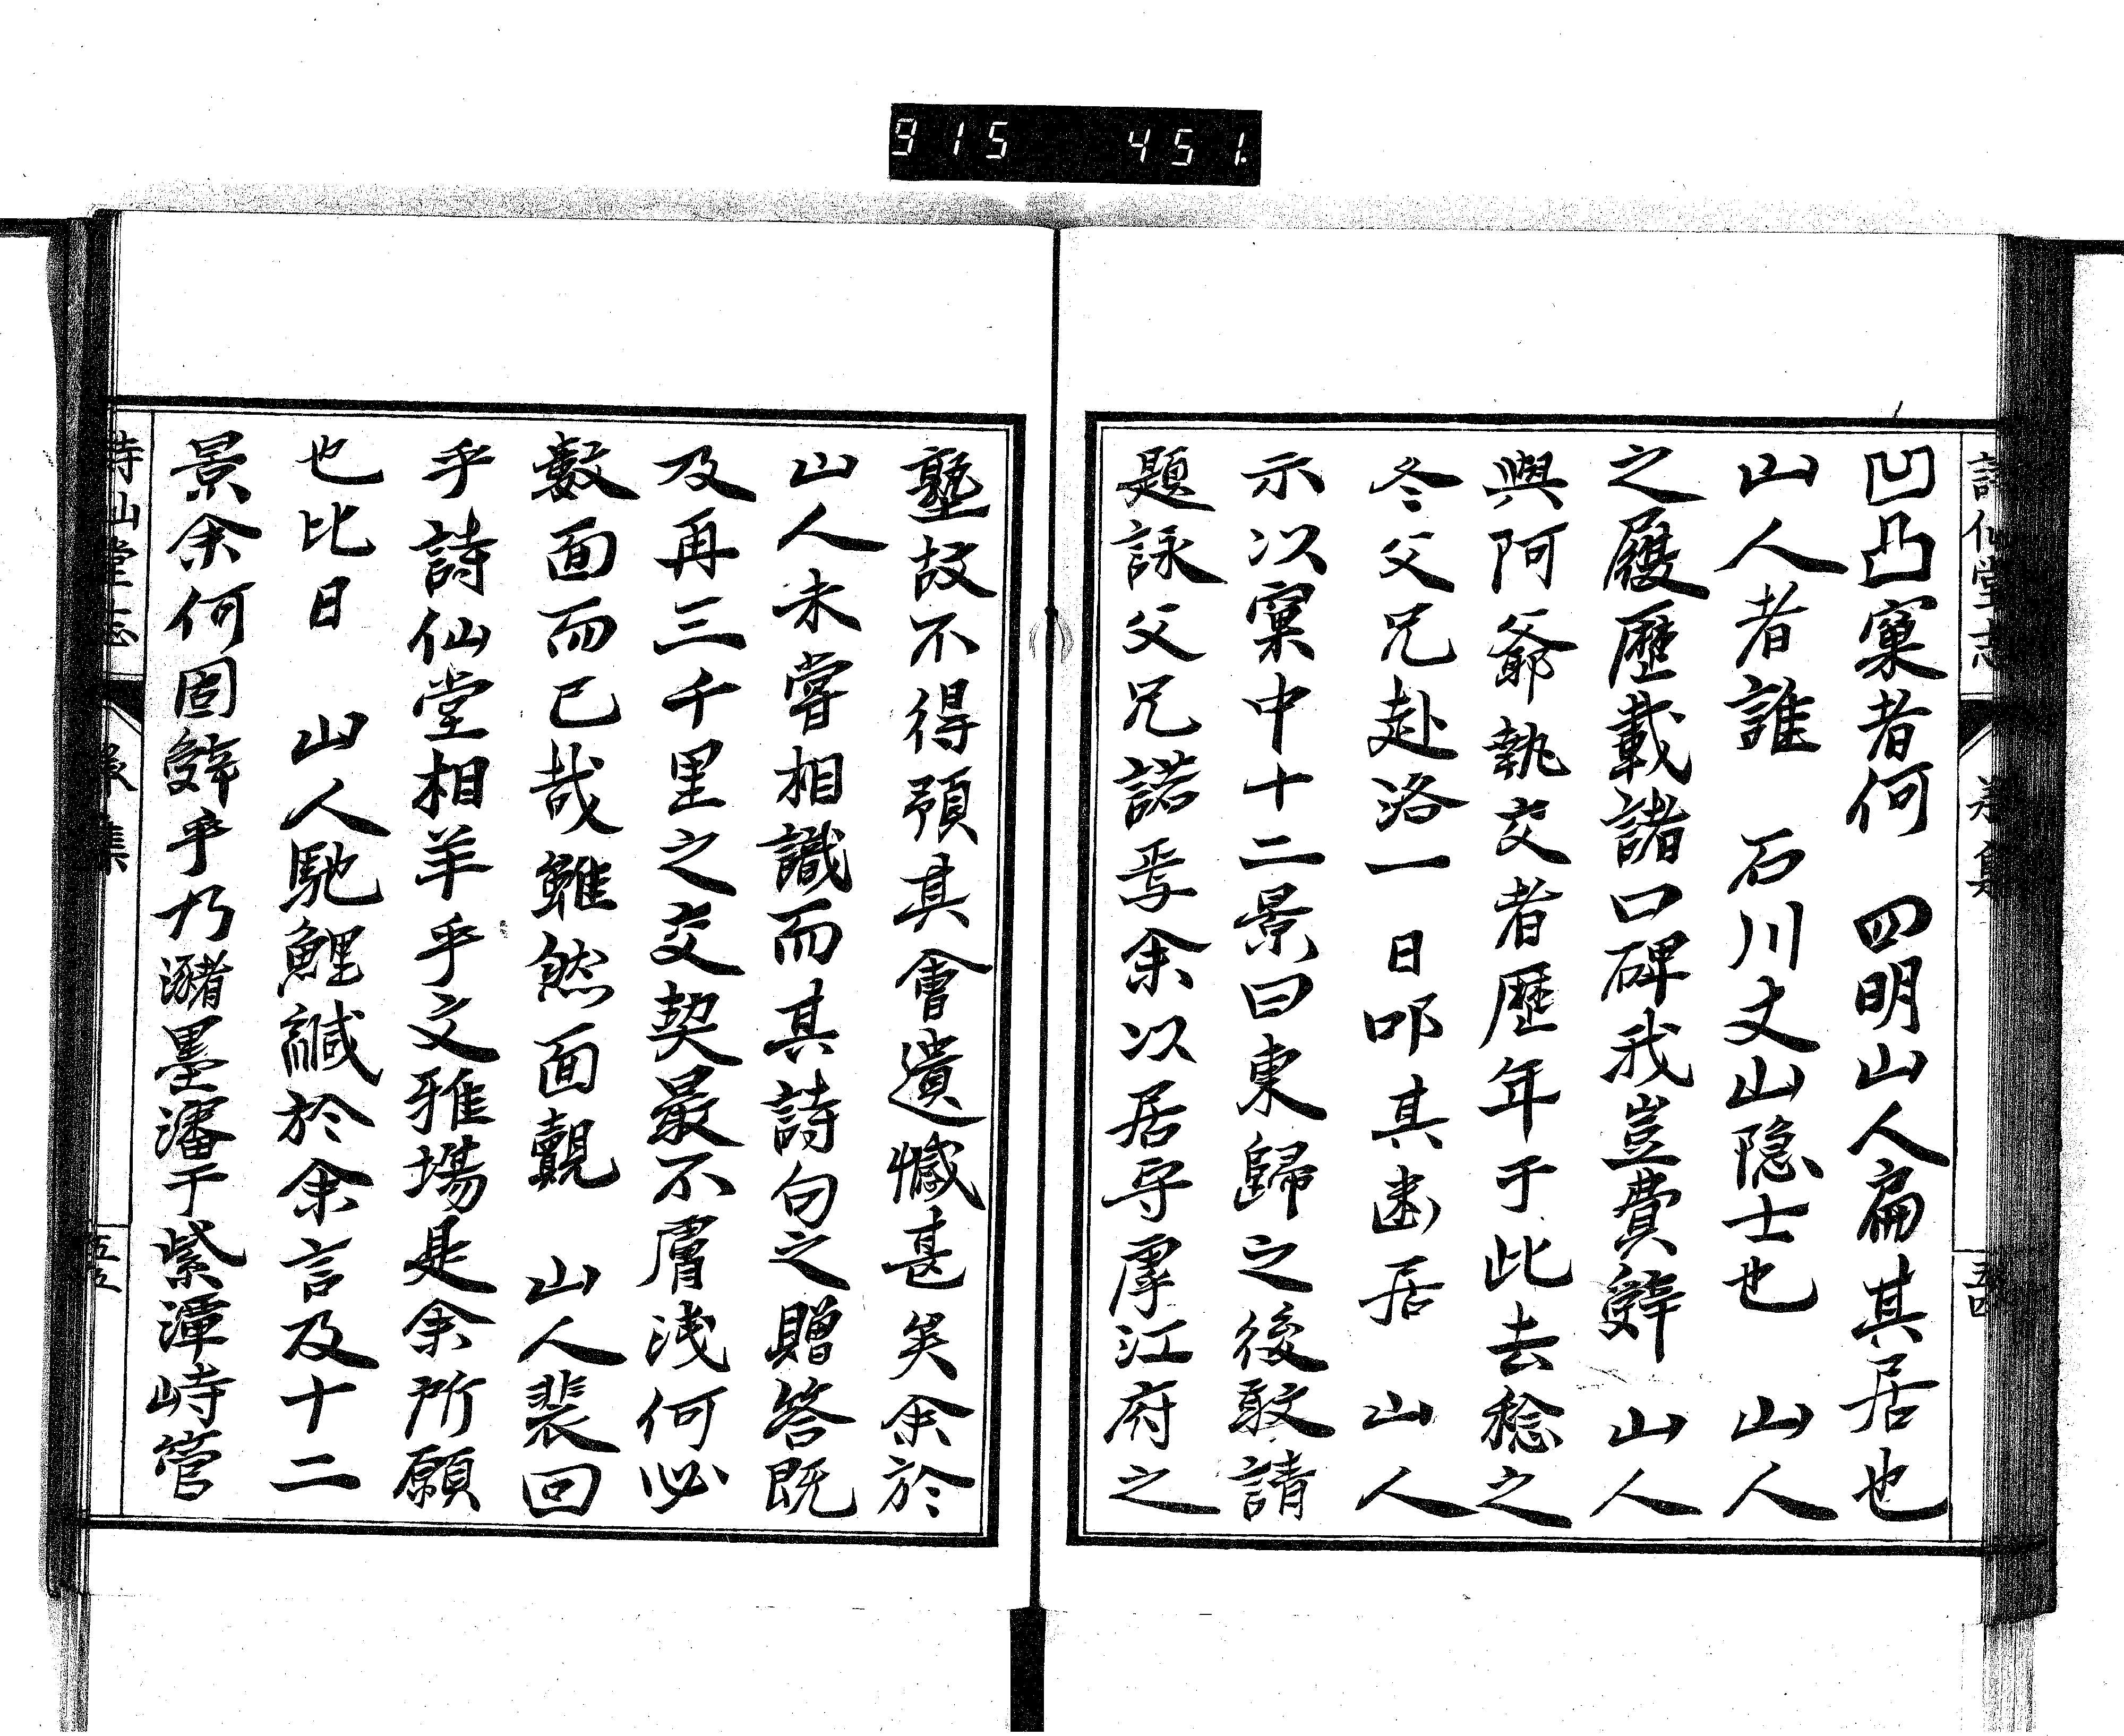 915 451.
詩仙堂志
凹凸窠者何　四明山人扁其居也
山人者誰　石川丈山隐士也　山人
之履歷載諸口碑我豈費辤　山人
與阿爺執交者歷年于此去稔之
冬父兄赴洛一日叩其幽居　山人
示以窠中十二景曰東歸之後敢請
題詠父兄諾焉余以居守厚江府之
塾故不得預其會遺憾甚矣余於
山人未嘗相識而其詩句之贈答既
及再三千里之交契最不膚浅何必
數面而已哉雖然面覿　山人裴回
乎詩仙堂相羊乎文雅場是余所願
也比日　山人馳鯉緘於余言及十二
景余何固辤乎乃瀦墨瀋于紫潭峙管
詩仙堂志
五五